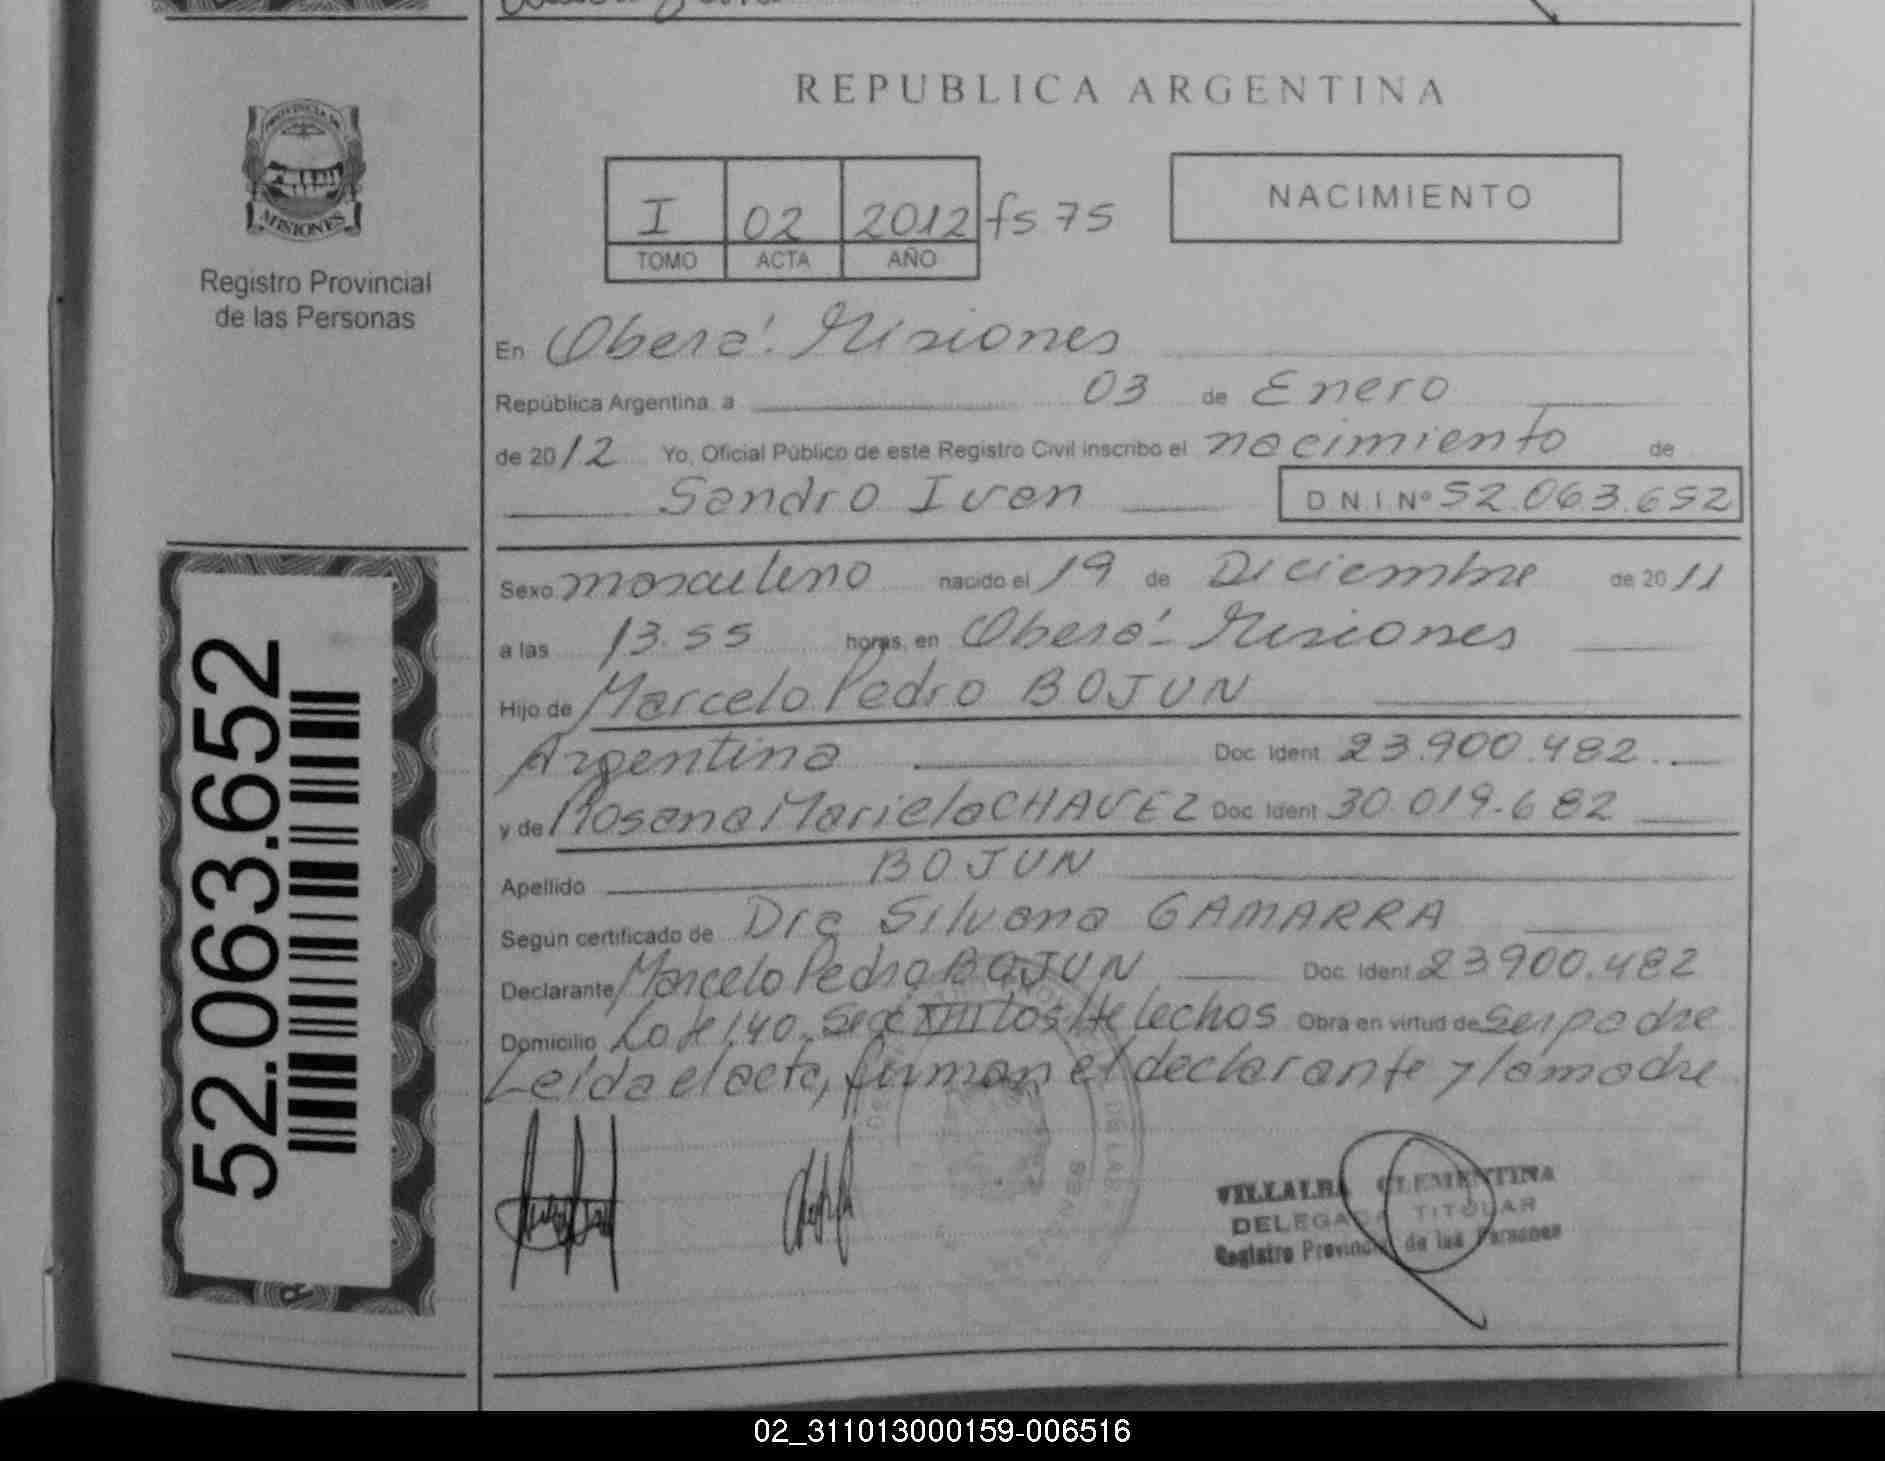 REPUBLICA ARGENTINA
PROVINCIA DE
MISIONES
Registro Provincial
de las Personas
I 02 2012 fs 75
TOMO ACTA AÑO
NACIMIENTO
En Oberá. Misiones
República Argentina, a 03 de Enero
de 2012 Yo, Oficial Público de este Registro Civil inscribo el nacimiento de
Sandro Ivan D.N.I Nº 52.063.652
Sexo masculino nacido el 19 de Diciembre de 2011
a las 13.55 horas, en Oberá - Misiones
Hijo de Marcelo Pedro BOJUN
Argentina Doc. Ident. 23.900.482
y de Rosana Mariela CHAVEZ Doc. Ident. 30.019.682
Apellido BOJUN
Según certificado de Dra Silvana GAMARRA
Declarante Marcelo Pedro BOJUN Doc. Ident. 23.900.482
Domicilio Lote 140. Secc XVII Los Helechos Obra en virtud de Ser padre
Leída el acta, firman el declarante y la madre
VILLALBA CLEMENTINA
DELEGADA TITULAR
Registro Provincial de las Personas
52.063.652
02_311013000159-006516